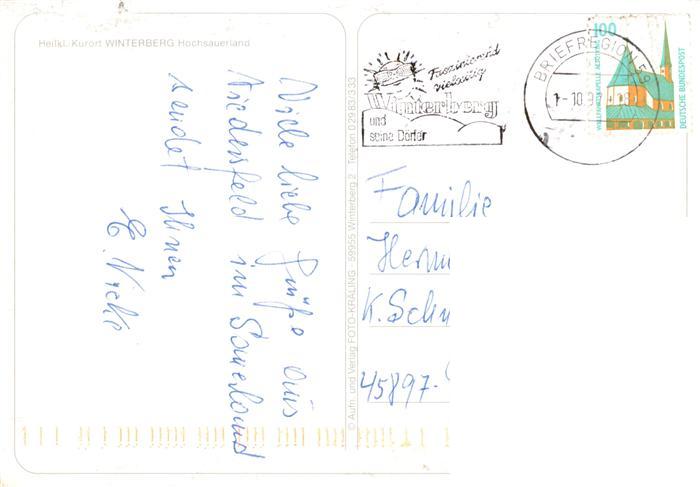 Heilkl. Kurort WINTERBERG Hochsauerland
Viele liebe Grüße aus
Niedersfeld im Sauerland
sendet Ihnen
E. Nicke
© Aufn. und Verlag FOTO-KRÄLING · 59955 Winterberg 2 · Telefon 0 29 83/333
Faszinierend
vielseitig
Winterberg
und
seine Dörfer
BRIEFREGION 59
1-10.9
100
WALLFAHRTSKAPELLE ALTÖTTING
DEUTSCHE BUNDESPOST
Familie
Herm
K. Schu
45897-